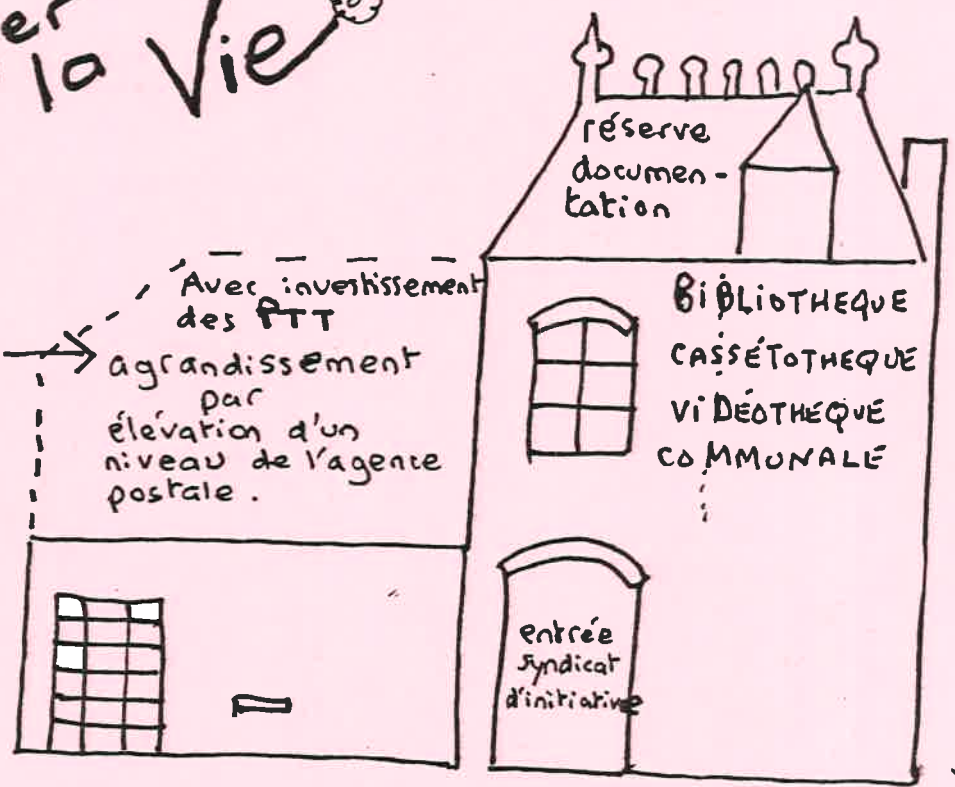 er
la Vie
réserve
documen-
tation
Avec investissement
des PTT
agrandissement
par
élévation d'un
niveau de l'agence
postale.
BiBLiOTHEQUE
CASSÉTOTHEQUE
ViDÉOTHEQUE
COMMUNALE
entrée
syndicat
d'initiative